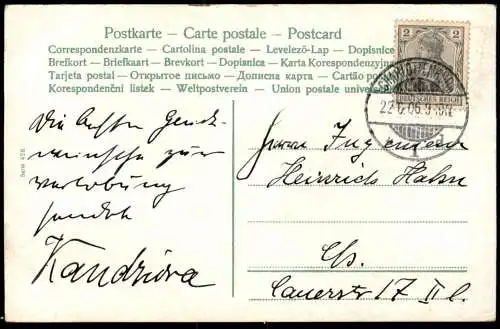 Postkarte - Carte postale - Postcard
Correspondenzkarte — Cartolina postale — Levelező-Lap — Dopisnice
Brefkort — Briefkaart — Brevkort — Dopisnica — Karta Korespondenzyjna
Tarjeta postal — Открытое письмо — Дописна карта — Cartão postal
Korespondenční listek — Weltpostverein — Union postale universelle
2 2
CHARLOTTENBURG
DEUTSCHES REICH
22.6.06.9-10V.
Die besten Glück-
wünsche zur
Verlobung
sendet
Kandziora
Serie 476
Herrn Ingenieur
Heinrich Hahn
Ch.
Cauerstr 17 II l.